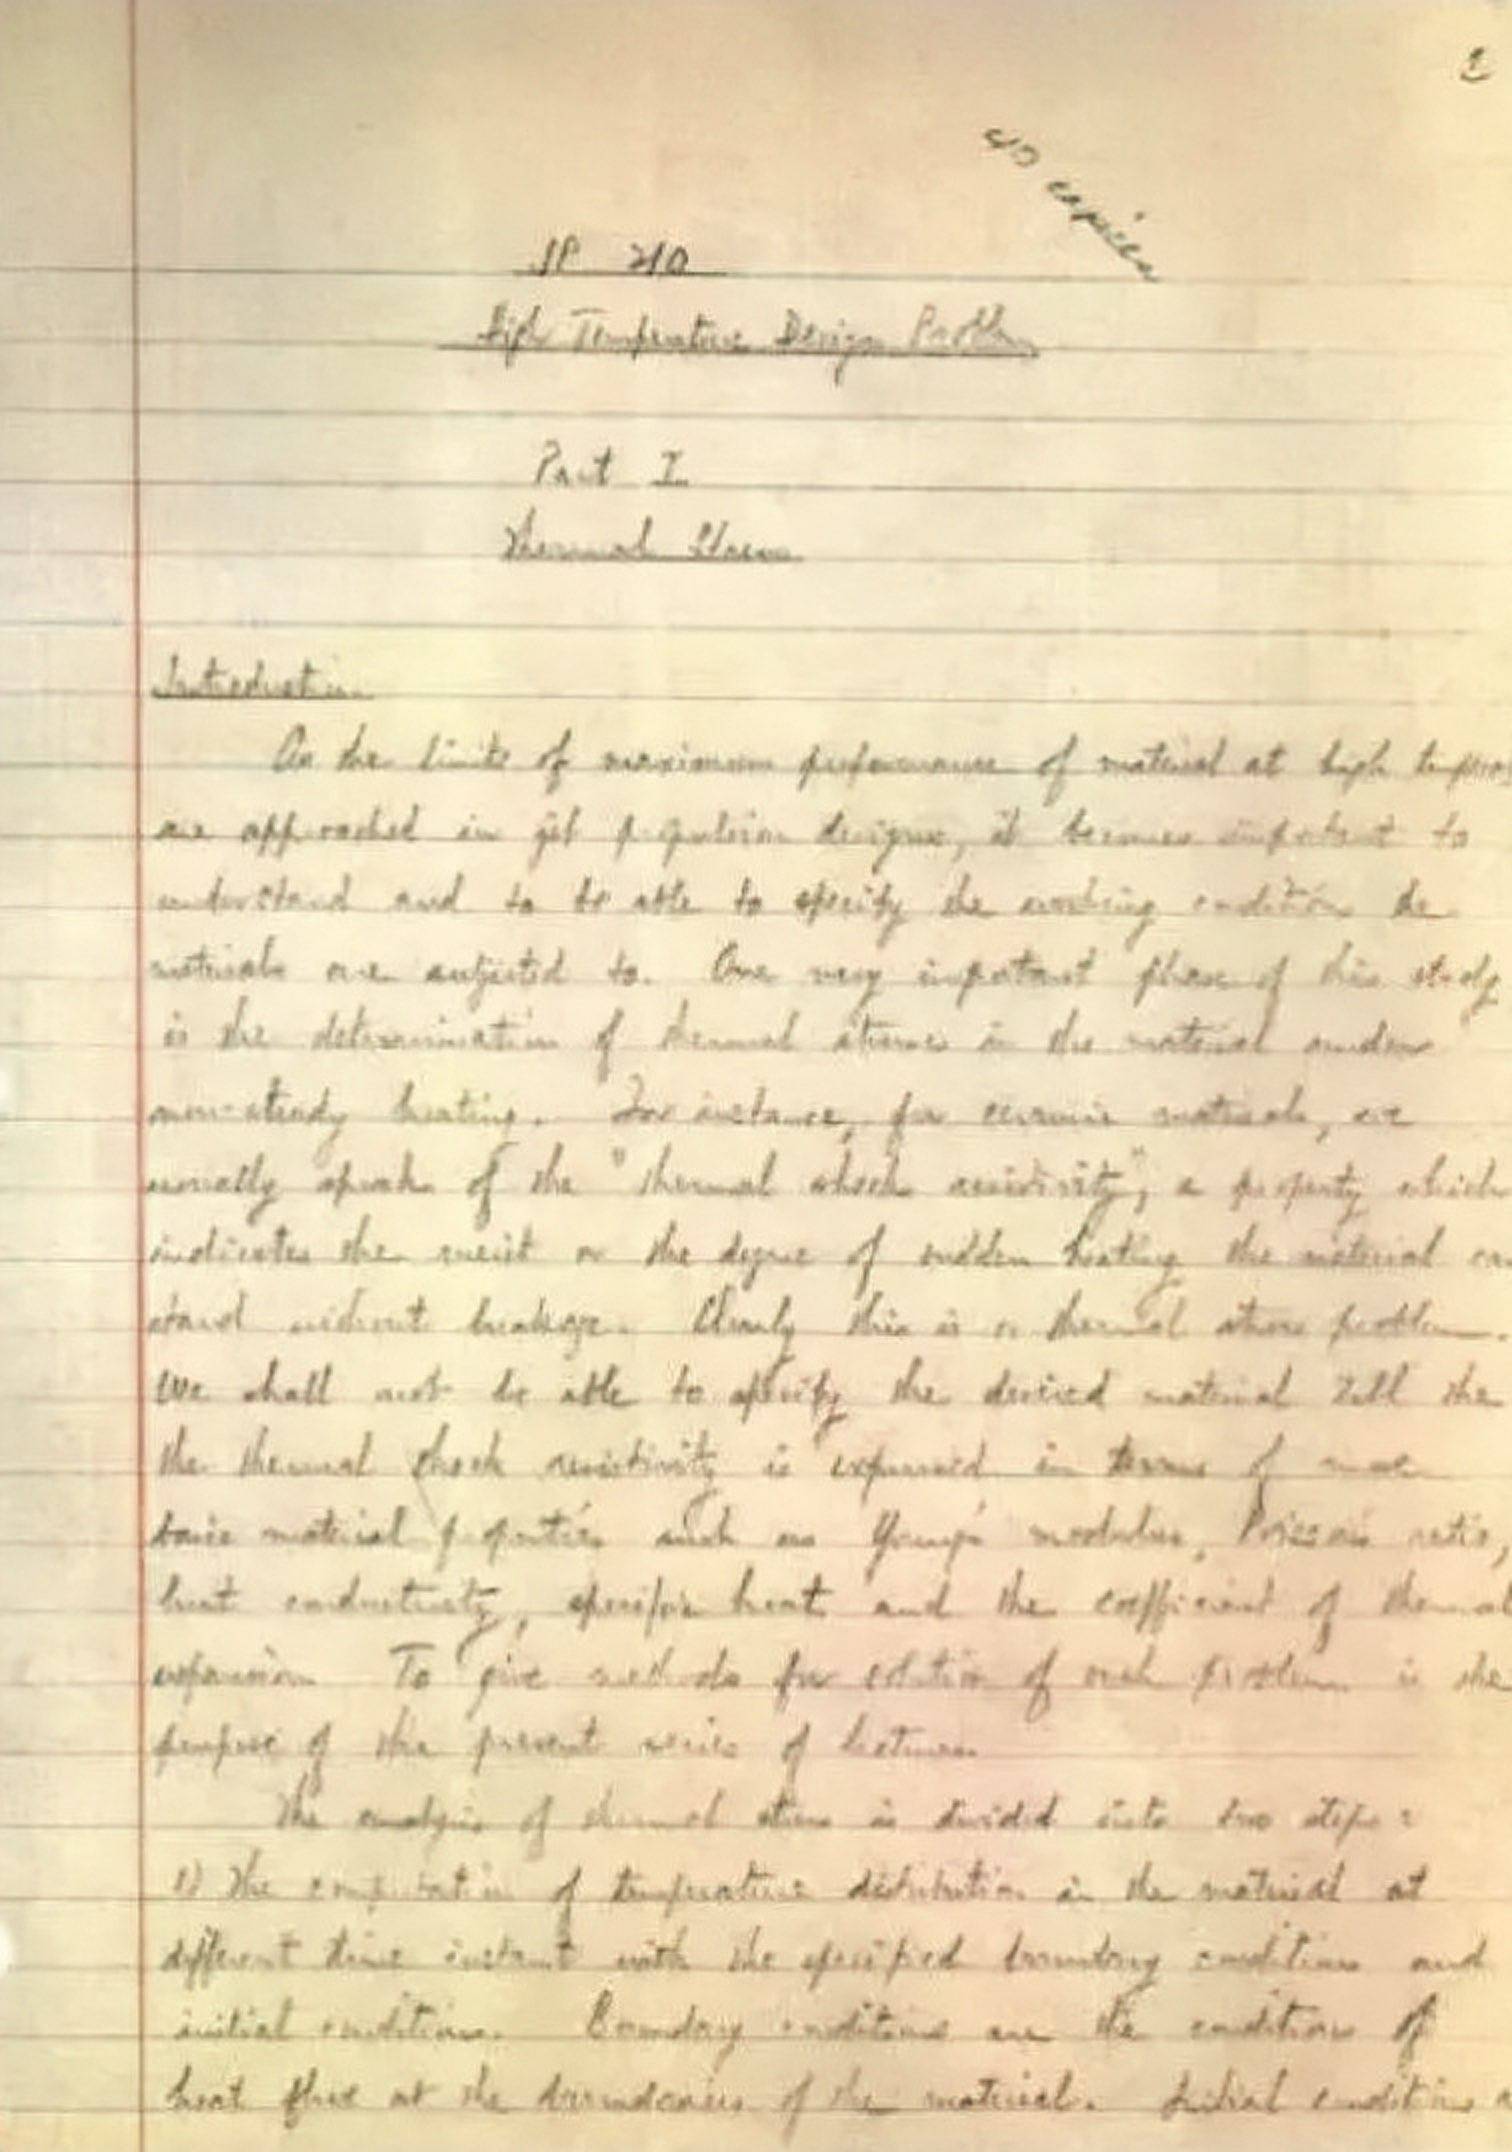 1
40 copies
JP 210
High Temperature Design Problem
Part I
Thermal Stress
Introduction
As the limits of maximum performance of material at high
are approached in jet propulsion designs, it becomes important to
understand and to be able to specify the working condition the
materials are subjected to. One very important phase of this study
is the determination of thermal stresses in the material under
non-steady heating. For instance, for ceramic materials, we
usually speak of the "thermal shock resistivity", a property which
indicates the merit or the degree of sudden heating the material can
stand without breakage. Clearly this is a thermal stress problem.
We shall not be able to specify the desired material till the
the thermal shock resistivity is expressed in terms of more
basic material properties such as Young's modulus, Poisson's ratio,
heat conductivity, specific heat and the coefficient of thermal
expansion. To give methods for solution of such problem is the
purpose of the present series of lectures.
The analysis of thermal stress is divided into two steps:
1) The computation of temperature distribution in the material at
different time instant with the specified boundary conditions and
initial conditions. Boundary conditions are the conditions of
heat flux at the boundaries of the material. Initial conditions